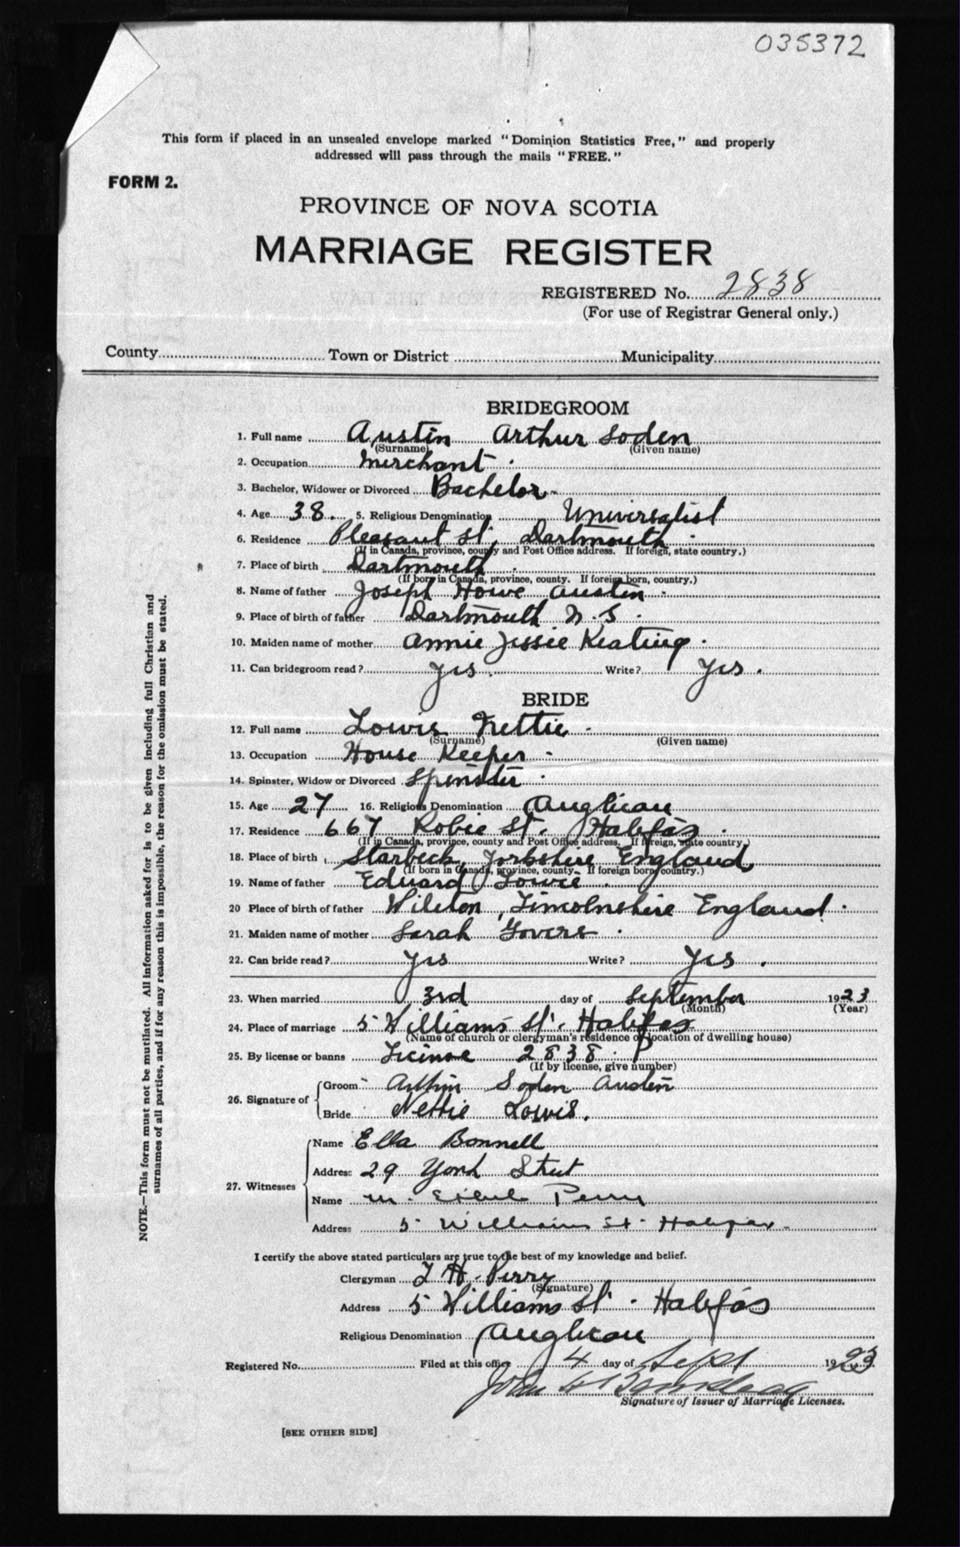 035372
This form if placed in an unsealed envelope marked "Dominion Statistics Free," and properly
addressed will pass through the mails "FREE."
FORM 2.
PROVINCE OF NOVA SCOTIA
MARRIAGE REGISTER
REGISTERED No. 2838
(For use of Registrar General only.)
County Town or District Municipality
BRIDEGROOM
1. Full name Austin Arthur Soden
(Surname) (Given name)
2. Occupation Merchant
3. Bachelor, Widower or Divorced Bachelor
4. Age 38. 5. Religious Denomination Universalist
6. Residence Pleasant St, Dartmouth
(If in Canada, province, county and Post Office address. If foreign, state country.)
7. Place of birth Dartmouth
(If born in Canada, province, county. If foreign born, country.)
8. Name of father Joseph Howe Austin
9. Place of birth of father Dartmouth N.S.
10. Maiden name of mother Annie Jessie Keating.
11. Can bridegroom read? Yes. Write? Yes.
BRIDE
12. Full name Lowis Nettie
(Surname) (Given name)
13. Occupation House Keeper
14. Spinster, Widow or Divorced Spinster
15. Age 27 16. Religious Denomination Anglican
17. Residence 667 Robie St. Halifax
(If in Canada, province, county and Post Office address. If foreign, state country.)
18. Place of birth Starbeck, Yorkshire England
(If born in Canada, province, county. If foreign born, country.)
19. Name of father Edward
20 Place of birth of father Lincolnshire England
21. Maiden name of mother Sarah
22. Can bride read? Yes Write? Yes.
23. When married 3rd day of September 1923
(Month) (Year)
24. Place of marriage 5 Williams St. Halifax
(Name of church or clergyman's residence or location of dwelling house)
25. By license or banns License 2838.
(If by license, give number)
26. Signature of
Groom Arthur Soden Austin
Bride Nettie Lowis.
27. Witnesses
Name Ella Bonnell
Address 29 York Street
Name M. Perry
Address 5 Williams St. Halifax.
I certify the above stated particulars are true to the best of my knowledge and belief.
Clergyman H. Perry
(Signature)
Address 5 Williams St. Halifax
Religious Denomination Anglican
Registered No. Filed at this office 4 day of Sept 1923
John
Signature of Issuer of Marriage Licenses.
[SEE OTHER SIDE]
NOTE.—This form must not be mutilated. All information asked for is to be given including full Christian and
surnames of all parties, and if for any reason this is impossible, the reason for the omission must be stated.